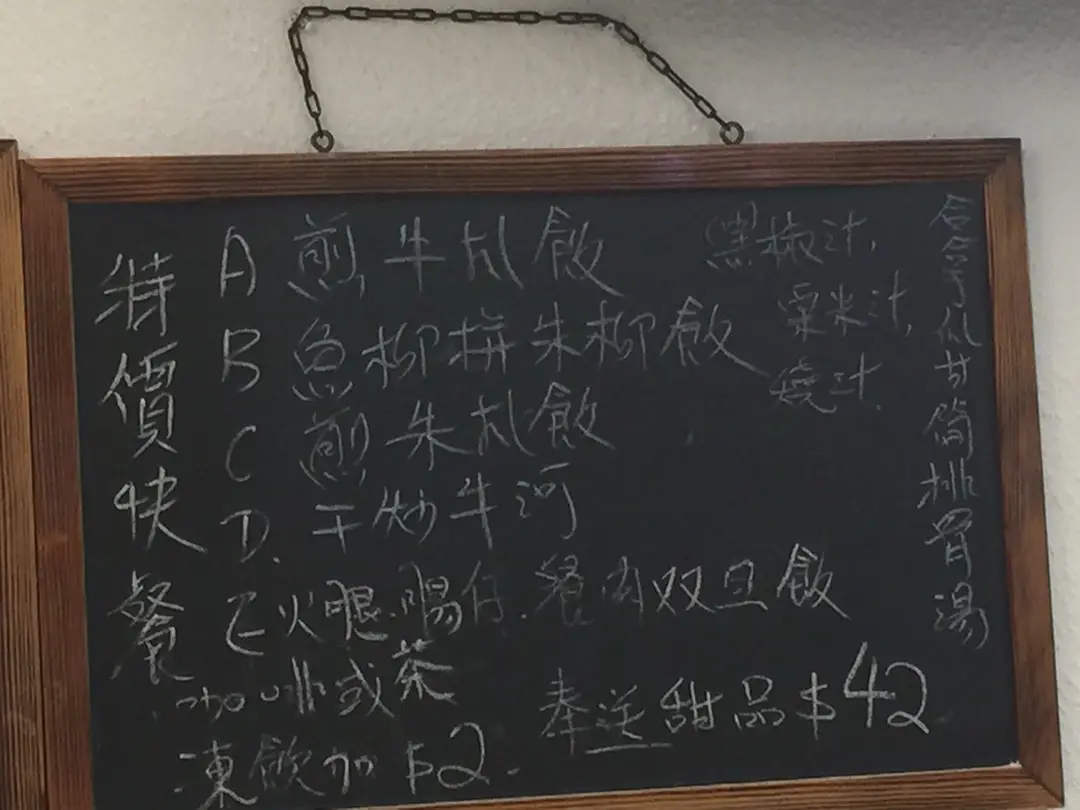 特價快餐
A 煎牛扒飯
B 魚柳拼朱柳飯
C 煎朱扒飯
D. 干炒牛河
E 火腿.腸仔.餐肉双旦飯
黑椒汁,
粟米汁,
燒汁.
咖啡或茶
凍飲加$2.
奉送甜品$42
合掌瓜甘筍排骨湯